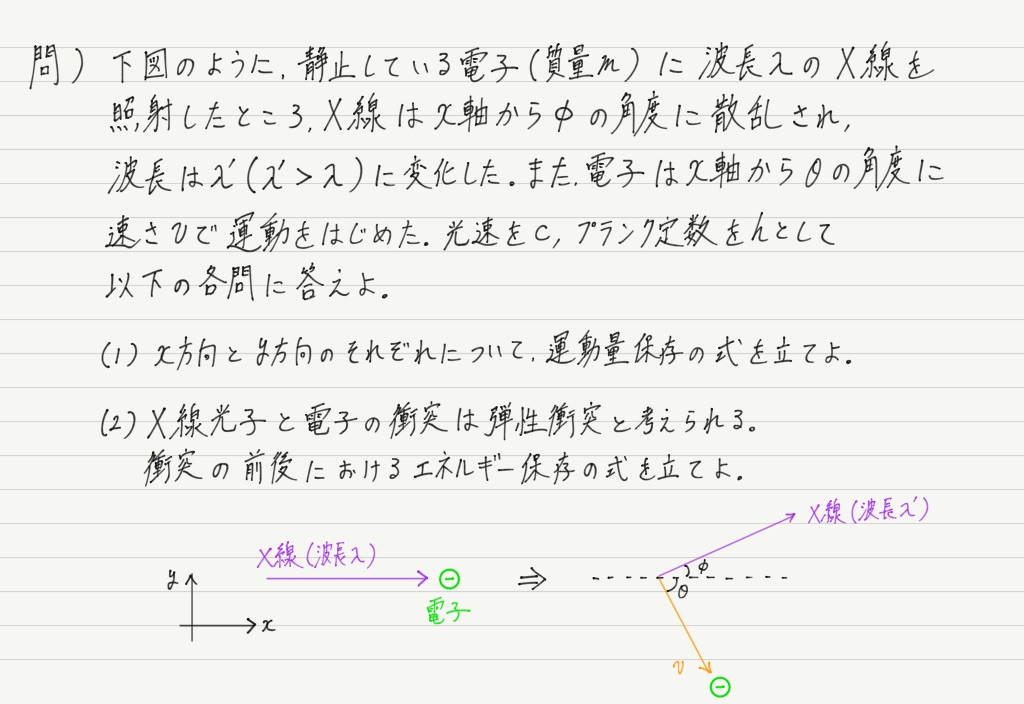 問) 下図のように, 静止している電子(質量m)に 波長λの X線を
照射したところ, X線はx軸からφの角度に散乱され,
波長はλ'(λ'>λ)に変化した。また, 電子はx軸からθの角度に
速さvで運動をはじめた. 光速をc, プランク定数をhとして
以下の各問に答えよ.
(1) x方向とy方向のそれぞれについて, 運動量保存の式を立てよ.
(2) X線光子と電子の衝突は弾性衝突と考えられる。
衝突の前後におけるエネルギー保存の式を立てよ.
X線(波長λ')
X線(波長λ)
y
x
⊖
電子
⇒
φ
θ
v
⊖